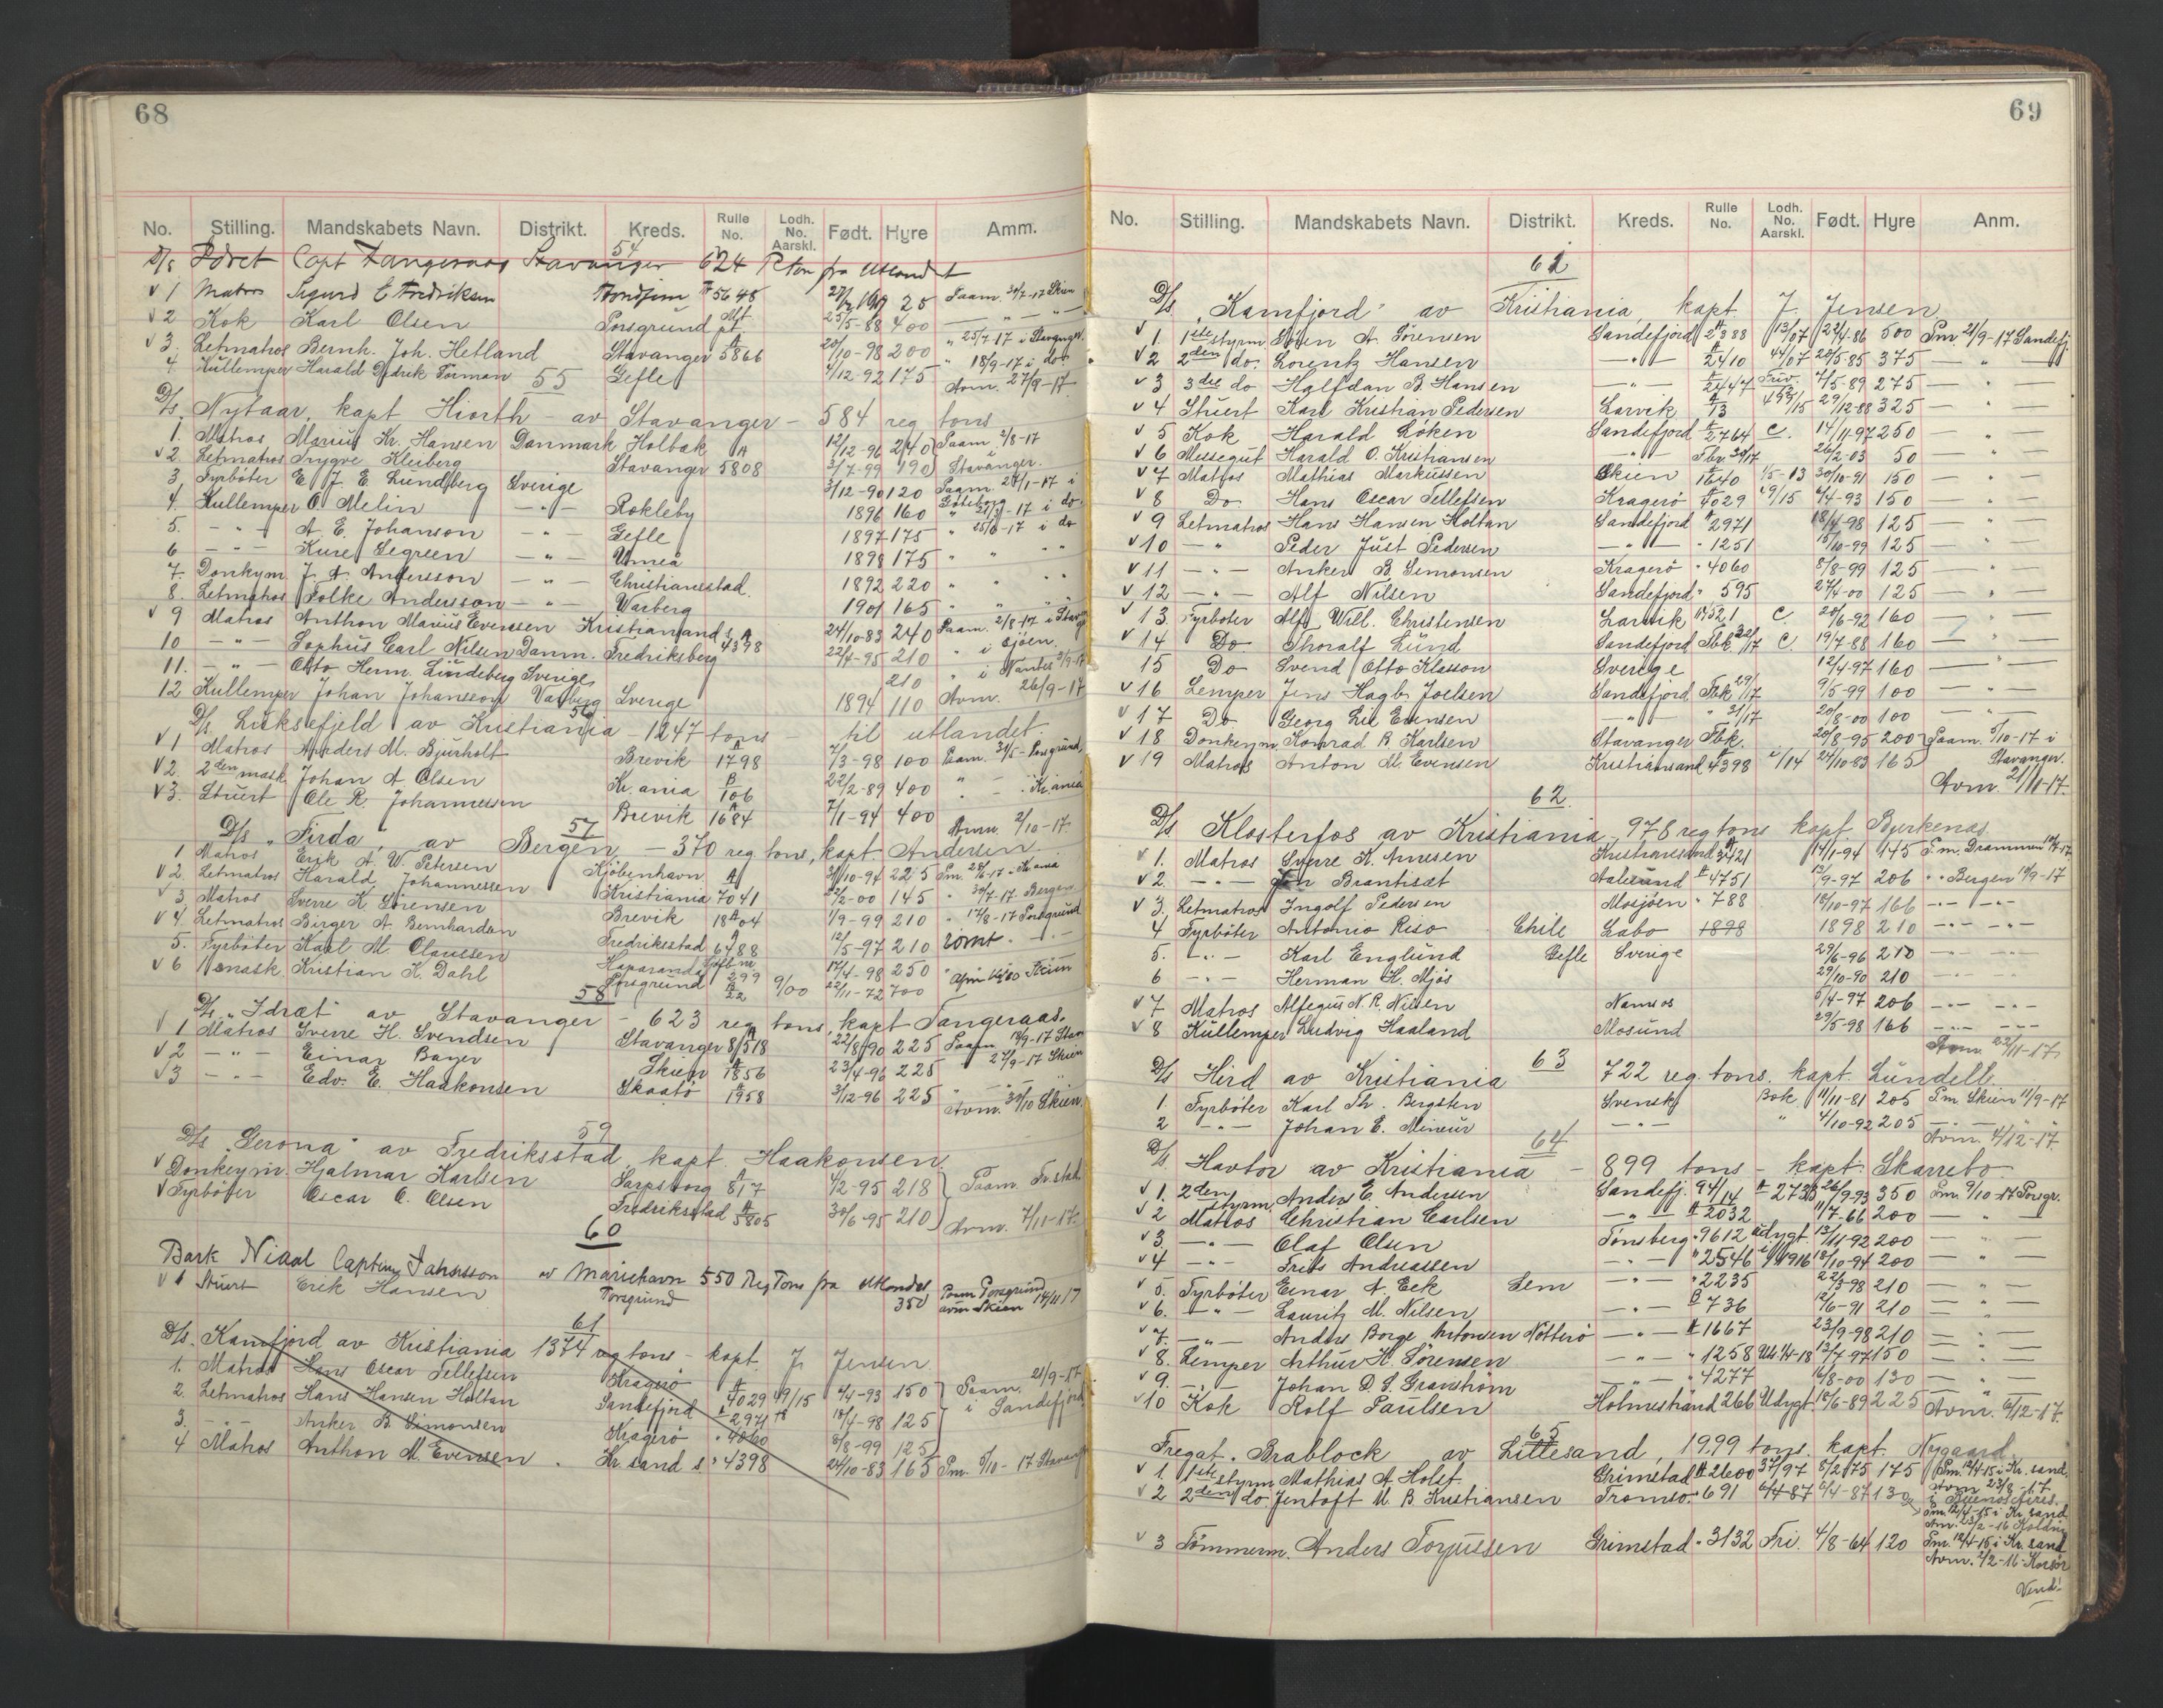 68
No. Stilling. Mandskabets Navn. Distrikt. Kreds. Rulle No. Lodh. No. Aarskl. Født. Hyre Amm.
54
D/s Idret Capt Tangeraas Stavanger 624 R ton fra Utlandet
v 1 Matros Sigurd E Fredriksen Trondjem A 5648 25 Paam. 30/7-17 Skien
v 2 Kok Karl Olsen Porsgrund 25/5-88 400 — " — " —
v 3. Letmatros Bernh. Joh. Hetland Stavanger A 5866 20/10-98 200 " 25/7-17 i
4 Kullemper Harald Didrik Forman Gefle 4/12-92 175 " 18/9-17 i do.
55 Avm. 27/9-17.
D/s. Nytaar, kapt Hiorth - av Stavanger - 584 reg tons
1. Matros Marius Kr. Hansen Danmark Holbak 12/12-96 240 Paam 2/8-17
v 2 Letmatros Trygve Kleiberg Stavanger A 5808 3/7-99 190 i Stavanger.
3, Fyrbøter E. J. E. Lundberg Sverige 3/12-90 120 Paam 27/1-17 i Göteborg
4. Kullemper O. Melin — " — Rokleby 1896 160 " 27/3-17 i do.
5. — " — A. E. Johanson — " — Gefle 1897 175 " 25/6-17 i do
6 — " — Kure Segreen — " — Umeå 1898 175 " " " "
7. Donkym. J. A. Andersson — " — Christiansstad. 1892 220 " " "
8. Letmatros Folke Andersson — " — Warberg 1901 165 " " " "
v 9 Matros Anthon Marius Evensen Kristiansand S. A 4398 24/10-83 240 Paam. 2/8-17 i Stavgr
10 — " — Sophus Carl Nilsen Danm. Fredriksberg 22/4-95 210 "
11. — " — Otto Herm. Lindeberg Sverige 210 " i Nantes
12 Kullemper Johan Johansson Varberg Sverige 1894 110 Avm. 26/9-17
56
D/s. Luksefjeld av Kristiania - 1247 tons - til utlandet
v 1 Matros Anders M. Bjurholt Brevik A 1798 7/3-98 100 Paam. 31/5 - Porsgrund,
v 2. 2den mask. Johan A. Olsen Kr.ania B 106 22/2-89 400 " - " Kr.ania
v 3. Stuert Ole R. Johannessen Brevik A 1684 7/1-94 400
57 Avm. 2/10-17.
D/s. „Firda", av Bergen, - 370 reg. tons, kapt. Andersen.
1 Matros Erik A. W. Petersen Kjöbenhavn 31/10-94 225 Pm. 24/6-17 - Kr.ania
v 2. Letmatros Harald Johannessen Kristiania A 7041 22/2-00 145 " 30/7-17 Bergen
v 3 Matros Sverre K. Sörensen Brevik A 1804 1/9-99 210 " 17/8-17 Porsgrund
v 4. Letmatros Birger A. Bernhardsen Fredriksstad A 6488 12/5-97 210 rømt. - " -
5. Fyrbøter Karl M. Olaussen Haparanda 299 17/4-98 250
v 6 1ste mask. Kristian K. Dahl Porsgrund A 22 9/00 22/11-72 700 Avm 10/10 Skien
58
D/s. „Idræt" av Stavanger - 623 reg tons, kapt Tangeraas.
v 1 Matros Sverre H. Svendsen Stavanger A 8518 22/8/90 225 Paam. 18/9-17 Stavr
v 2 — " — Einar Bager Skien A 1856 23/4-96 225 " 27/9-17 Skien
v 3 — " — Edv. E. Haakonsen Skaatö " 1958 3/12-96 225 " — " —
Avm. 30/10 Skien.
59
D/s. „Gerona" av Fredriksstad, kapt. Haakonsen.
v Donkeym. Hjalmar Karlsen Sarpsborg A 817 4/2-95 218 Paam. Fr.stad
v Fyrbøter Oscar O. Olsen Fredriksstad A 5805 30/6-95 210 Avm. 7/11-17.
60
Bark Niaal Captein Johnsson av Mariehavn 550 Reg Tons fra Utlandet
v 1 Stuert Erik Hansen Porsgrund 350 Paam Porsgrund avm Skien 14/11 17
61
D/s. Kamfjord av Kristiania 1374 reg tons - kapt. J. Jensen.
1. Matros Hans Oscar Tellefsen Kragerø A 4029 49/15 4/4-93 150 Paam. 21/9-17.
2. Letmatros Hans Hansen Holtan Sandefjord A 2971 18/4-98 125 i Sandefjord
3. — " — Anker B. Simonsen Kragerø " 4060 8/8-99 125
4 Matros Anthon M. Evensen. Kr.sand S " 4398 24/10-83 165 Pm. 5/10-17 Stavangr
69
No. Stilling. Mandskabets Navn. Distrikt. Kreds. Rulle No. Lodh. No. Aarskl. Født. Hyre Anm.
61
D/s „Kamfjord" av Kristiania, kapt J. Jensen
v 1. 1ste styrm. Søren A. Sörensen Sandefjord A 2388 13/07 22/4-86 500 Pm 21/9-17 Sandefj.
v 2 2den do. Lorentz Hansen — " — A 2410 44/07 28/5-85 375 — " —
v 3 3die do Halfdan B. Hansen — " — A 2447 Friv. 7/5-89 275 — " —
v 4 Stuert Karl Kristian Pedersen Larvik A 13 29/12-88 325 — " —
v 5 Kok Harald Löken Sandefjord A 2764 C. 14/11-97 250 — " —
v 6 Messegut Harald O. Kristiansen — " — Fbv 20/17 26/2-03 50 — " —
v 7 Matros Mathias Markussen Skien A 1640 1/5-13 30/10-91 150 — " —
v 8 Do. Hans Oscar Tellefsen Kragerø A 4029 49/15 4/4-93 150 — " —
v 9 Letmatros Hans Hansen Holtan Sandefjord A 2971 18/4-98 125 — " —
v 10 — " Peder Just Pedersen — " — " 1251 15/10-99 125 — " —
v 11 — " — Anker B. Simonsen Kragerø " 4060 8/8-99 125 — " —
v 12 — " — Alf Nilsen Sandefjord " 595 27/4-00 125 — " —
v 13. Fyrbøter Alf Will. Christensen Larvik 521 C. 28/6-92 160 — " —
v 14 Do Thoralf Lund Sandefjord Fbk 22/17 C. 19/7-88 160 — " —
15 Do Svend Otto Klasson Sverige 12/4-97 160 — " —
v 16 Lemper Jens Hagb. Joelsen Sandefjord Fbk 29/17 9/5-99 100 — " —
v 17 Do Georg Lie Evensen — " — " 31/17 20/8-00 100 — " —
v 18 Donkeym. Konrad B. Karlsen Stavanger Fbk. 20/8-95 200 Paam. 5/10-17 i
v 19 Matros Anton M. Evensen Kristiansand A 4398 2/14 24/10-83 165 Stavanger.
Avm. 21/11-17.
62.
D/s Klosterfos av Kristiania - 978 reg tons kapt Bjerkenås
v 1. Matros Sverre K. Arnesen Kristiansund A 3421 14/1-94 145 P.m. Drammen 10/9-17
v 2. — " — Brantisæt Aalesund A 4751 13/9-97 206 " " Bergen 19/9-17
v 3. Letmatros Ingolf Pedersen Mosjøen " 788 18/10-97 166 — " — — " —
4 Fyrbøter Antonio Riso Chile Labo 1898 1898 210 — " — — " —
5. — " — Karl Englund Gefle Sverige 29/6-96 210 — " — — " —
6 — " — Herman H. Mjös 29/10-90 210 — " — — " —
v 7 Matros Alfegus N. R. Nilsen Namsos 5/4-97 206 — " — — " —
v 8 Kullemper Ludvig Haaland Mosund 29/5-98 166 — " — — " —
Avm. 22/11-17.
63
D/s Hird av Kristiania 722 reg. tons. kapt. Lundell.
1. Fyrbøter Karl Th. Bergsten Svensk Bok 11/11-81 205 Pm Skien 11/9-17
2 — " — Johan E. Mineur — " — " 4/10-92 205 — " —
Avm. 4/12-17.
64
D/s. Havtor av Kristiania - 899 tons - kapt. Skarrebo
v 1. 2den styrm. Anders E. Andersen Sandefj. 94/14 A 2733 26/9-93 350 Pm. 9/10-17 Porsgr.
v 2 Matros Christian Carlsen — " — A 2032 11/7-66 200 — " —
v 3 — " — Olaf Olsen Tønsberg " 9612 Udygt. 13/11-92 200 — " —
v 4 — " — Frits Andreassen — " — " 2546 18/10-94 200 — " —
v 5. Fyrbøter Einar A. Eek Sem — " — " 2235 22/3-98 210 — " —
v 6. — " — Lauritz M. Nilsen — " — B 736 12/6-91 210 — " —
v 7. — " — Anders Borge Antonsen Nötterö — " — A 1667 23/9-98 210 — " —
v 8. Lemper Arthur H. Sörensen — " — " 1258 13/7-97 150 — " —
v 9. — " — Johan D. S. Granstrøm — " — " 4277 16/8-00 130 — " —
v 10 Kok Rolf Paulsen Holmestrand 266 Udygt. 18/6-89 225 Avm. 6/12-17.
65
Fregat. Brablock av Lillesand, 1999 tons. kapt. Nygaard.
v 1. 1ste styrm Mathias A. Holst Grimstad A 2600 37/97 8/2 75 175 Pm. 12/4-15 i Kr.sand.
Avm 23/8-17
i Buenos Aires.
v 2 2den do Jentoft M. B. Kristiansen Tromsø. " 691 6/4-87 6/4-87 130 Pm. 12/4-15 i Kr.sand
Avm. 23/2-16 Kolding
v 3 Tømmerm. Anders Torjussen Grimstad " 3132 Fri. 4/8-64 120 Pm. 12/4-15 i Kr.sand
Avm. 2/2-16 - Korsör
Vend!